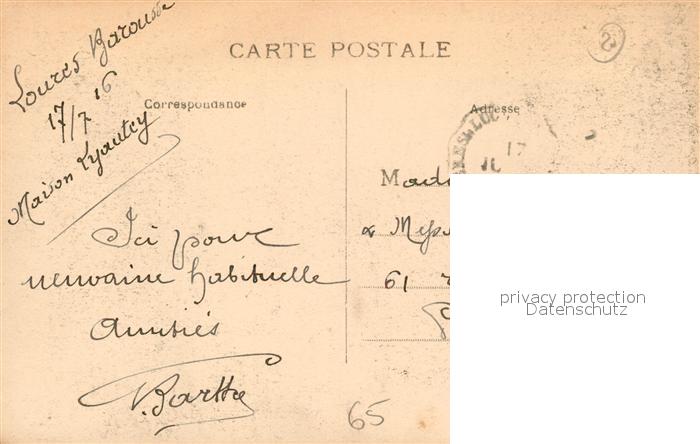 CARTE POSTALE
Loures Barousse
17/7 16
Maison Lyautey
Correspondance
Adresse
17
Ici pour
neuvaine habituelle
Amitiés
Barthe
61
65
privacy protection
Datenschutz